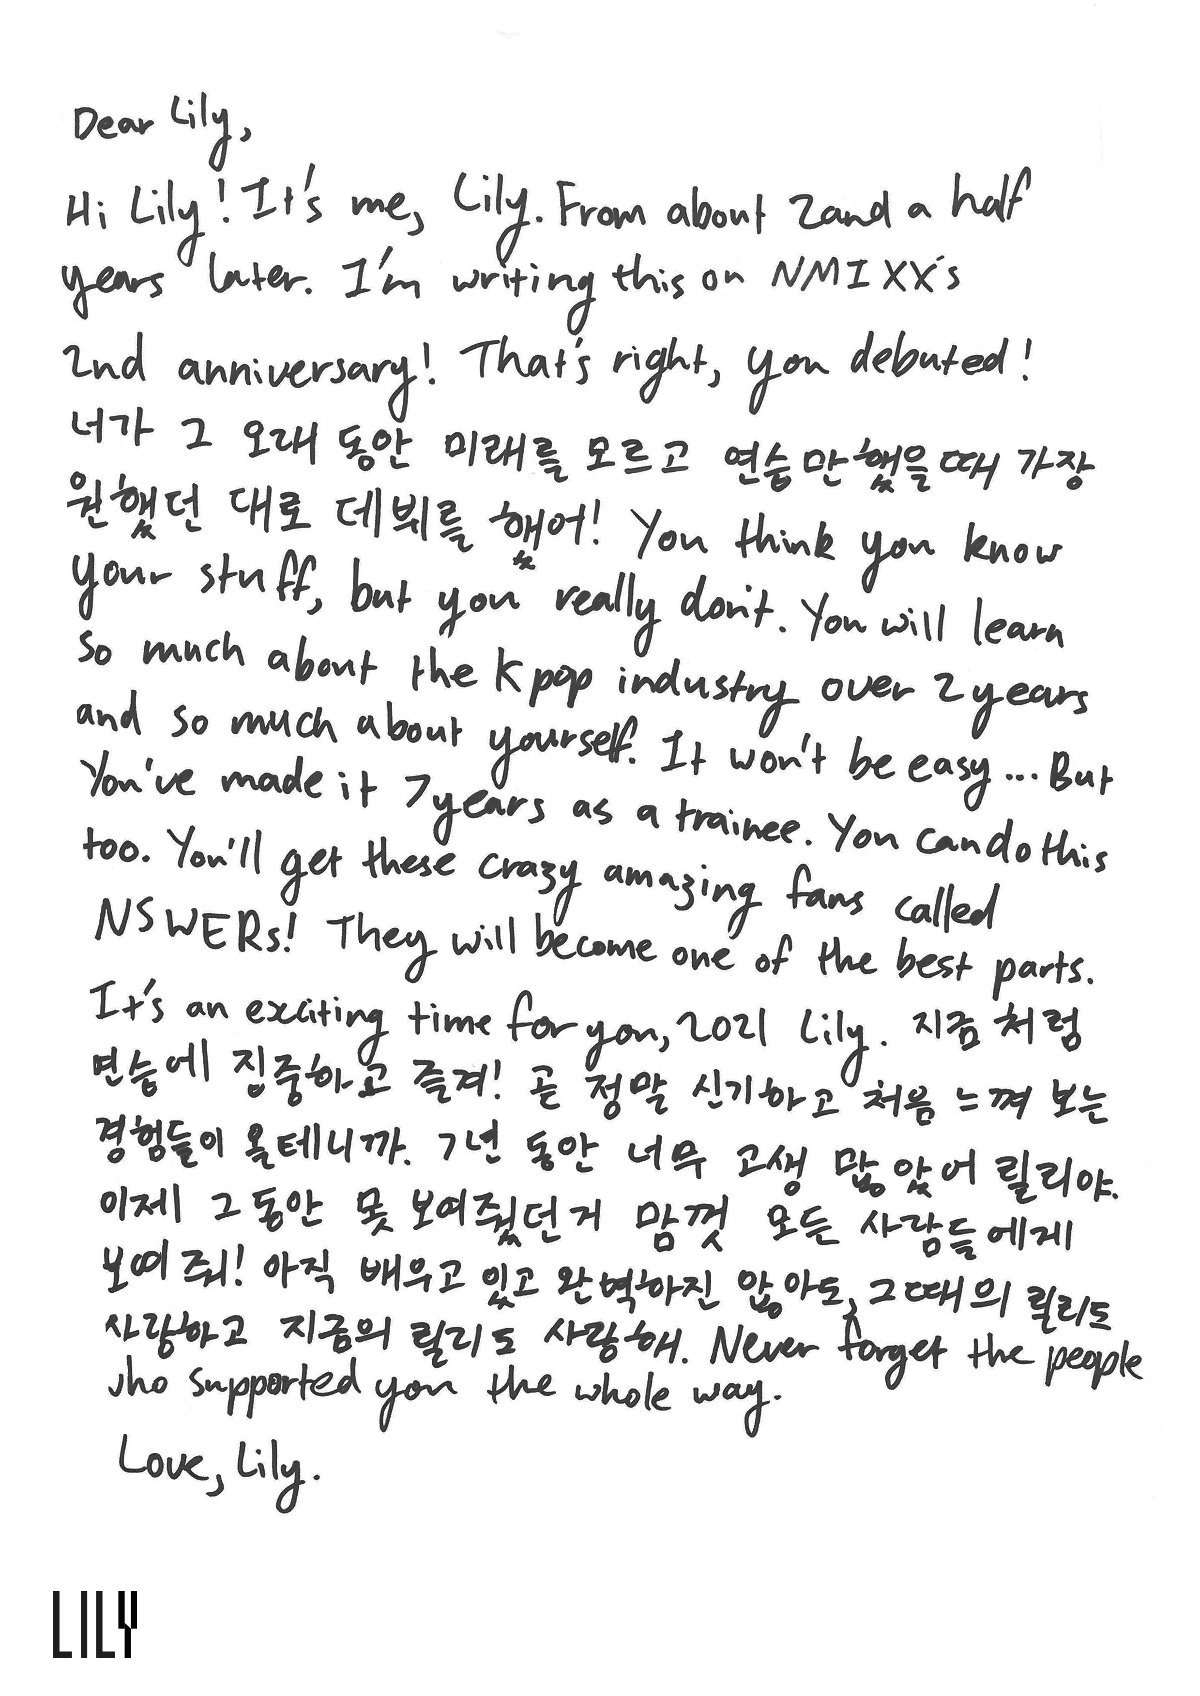 Dear Lily,
Hi Lily! It's me, Lily. From about 2 and a half
years later. I'm writing this on NMIXX's
2nd anniversary! That's right, you debuted!
너가 그 오래 동안 미래를 모르고 연습만했을때 가장
원했던 대로 데뷔를 했어! You think you know
your stuff, but you really don't. You will learn
so much about the Kpop industry over 2 years
and so much about yourself. It won't be easy... But
You've made it 7 years as a trainee. You can do this
too. You'll get these crazy amazing fans called
NSWERs! They will become one of the best parts.
It's an exciting time for you, 2021 Lily. 지금처럼
연습에 집중하고 즐겨! 곧 정말 신기하고 처음 느껴 보는
경험들이 올테니까. 7년 동안 너무 고생 많았어 릴리야.
이제 그동안 못 보여줬던거 맘껏 모든 사람들에게
보여줘! 아직 배우고 있고 완벽하진 않아도, 그때의 릴리도
사랑하고 지금의 릴리도 사랑해. Never forget the people
who supported you the whole way.
Love, Lily.
LILY